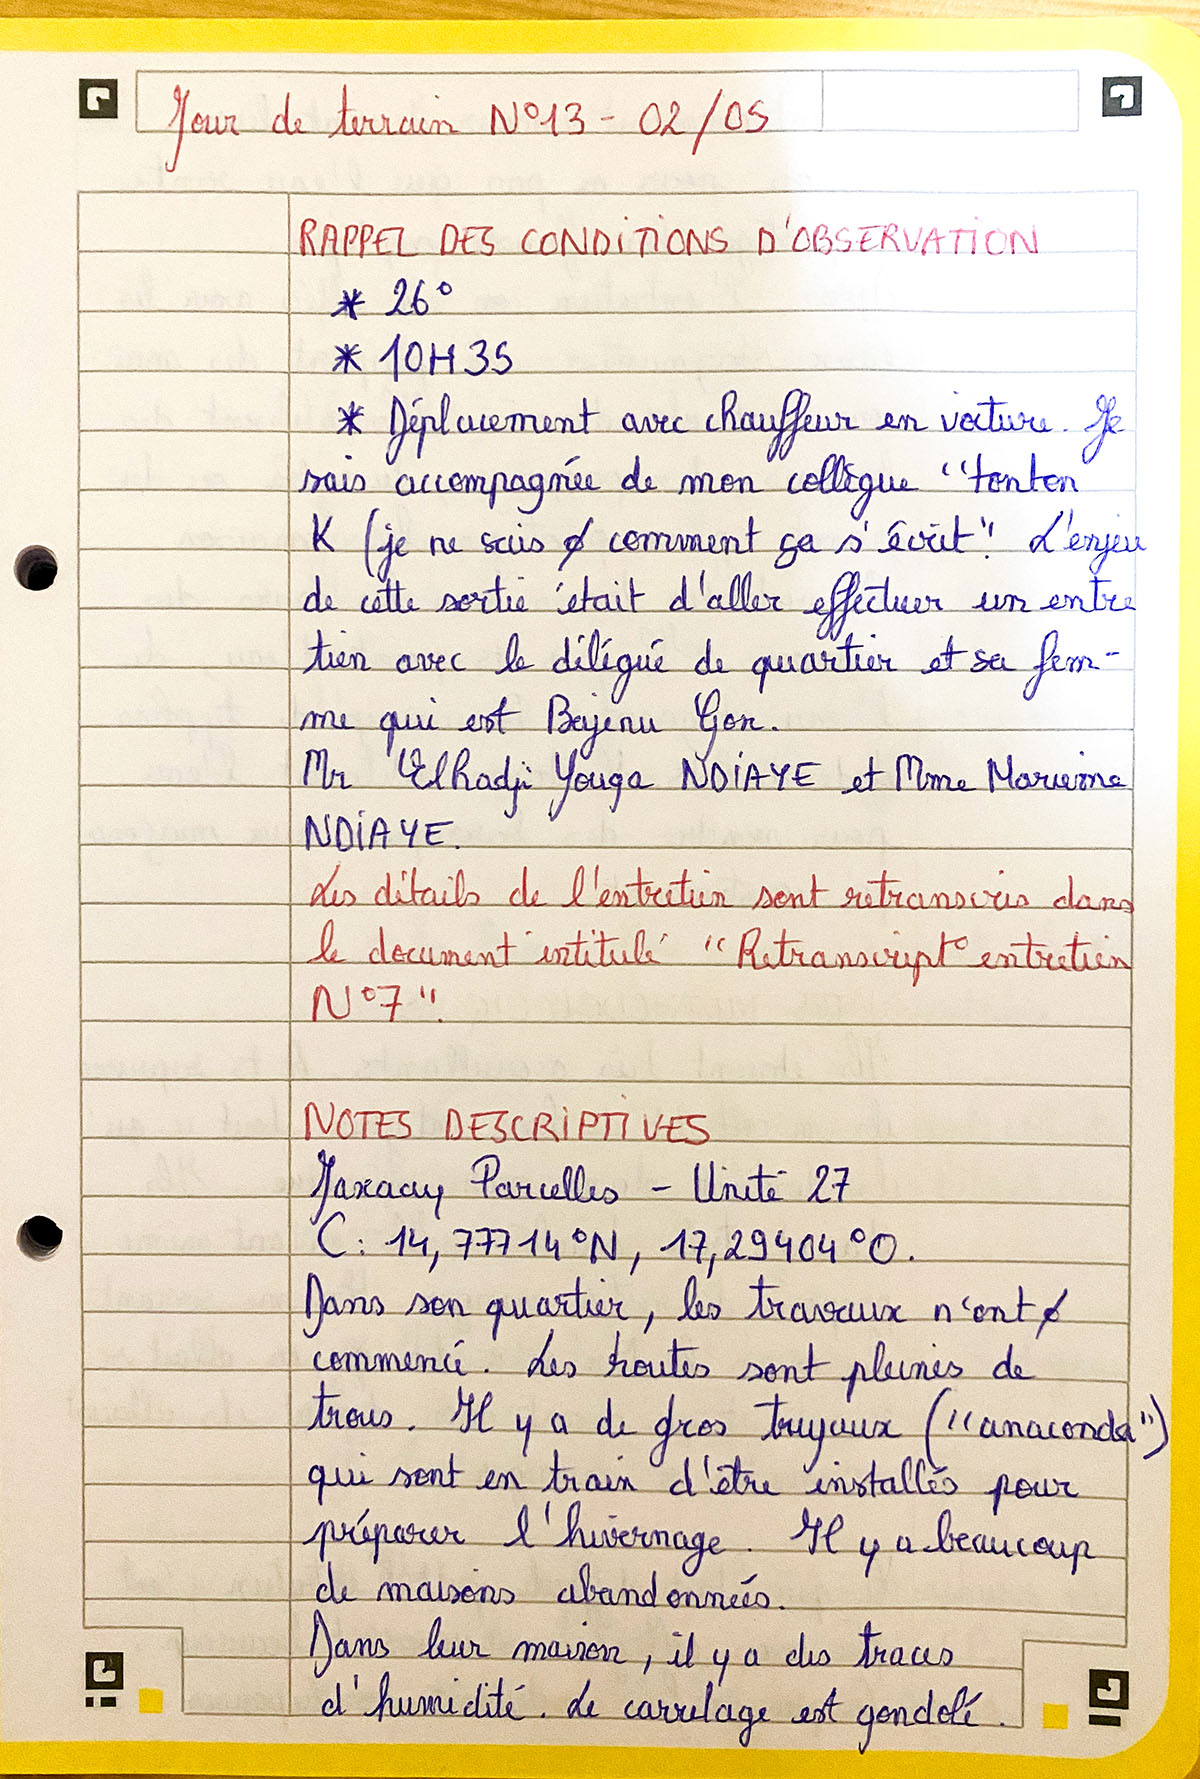 Jour de terrain N°13 - 02/05
RAPPEL DES CONDITIONS D'OBSERVATION
* 26°
* 10H35
* Déplacement avec chauffeur en voiture. Je
suis accompagnée de mon collègue "tonton
K (je ne sais ∅ comment ça s'écrit"! L'enjeu
de cette sortie était d'aller effectuer un entre
tien avec le délégué de quartier et sa fem-
me qui est Bajenu Gox.
Mr Elhadji Youga NDIAYE et Mme Marieme
NDIAYE.
Les détails de l'entretien sont retranscris dans
le document intitulé "Retranscript° entretien
N°7".
NOTES DESCRIPTIVES
Jaxaay Parcelles - Unité 27
C: 14,77714°N, 17,29404°O.
Dans son quartier, les travaux n'ont ∅
commencé. Les routes sont pleines de
trous. Il y a de gros tuyaux ("anaconda")
qui sont en train d'être installés pour
préparer l'hivernage. Il y a beaucoup
de maisons abandonnées.
Dans leur maison, il y a des traces
d'humidité. Le carrelage est gondolé.